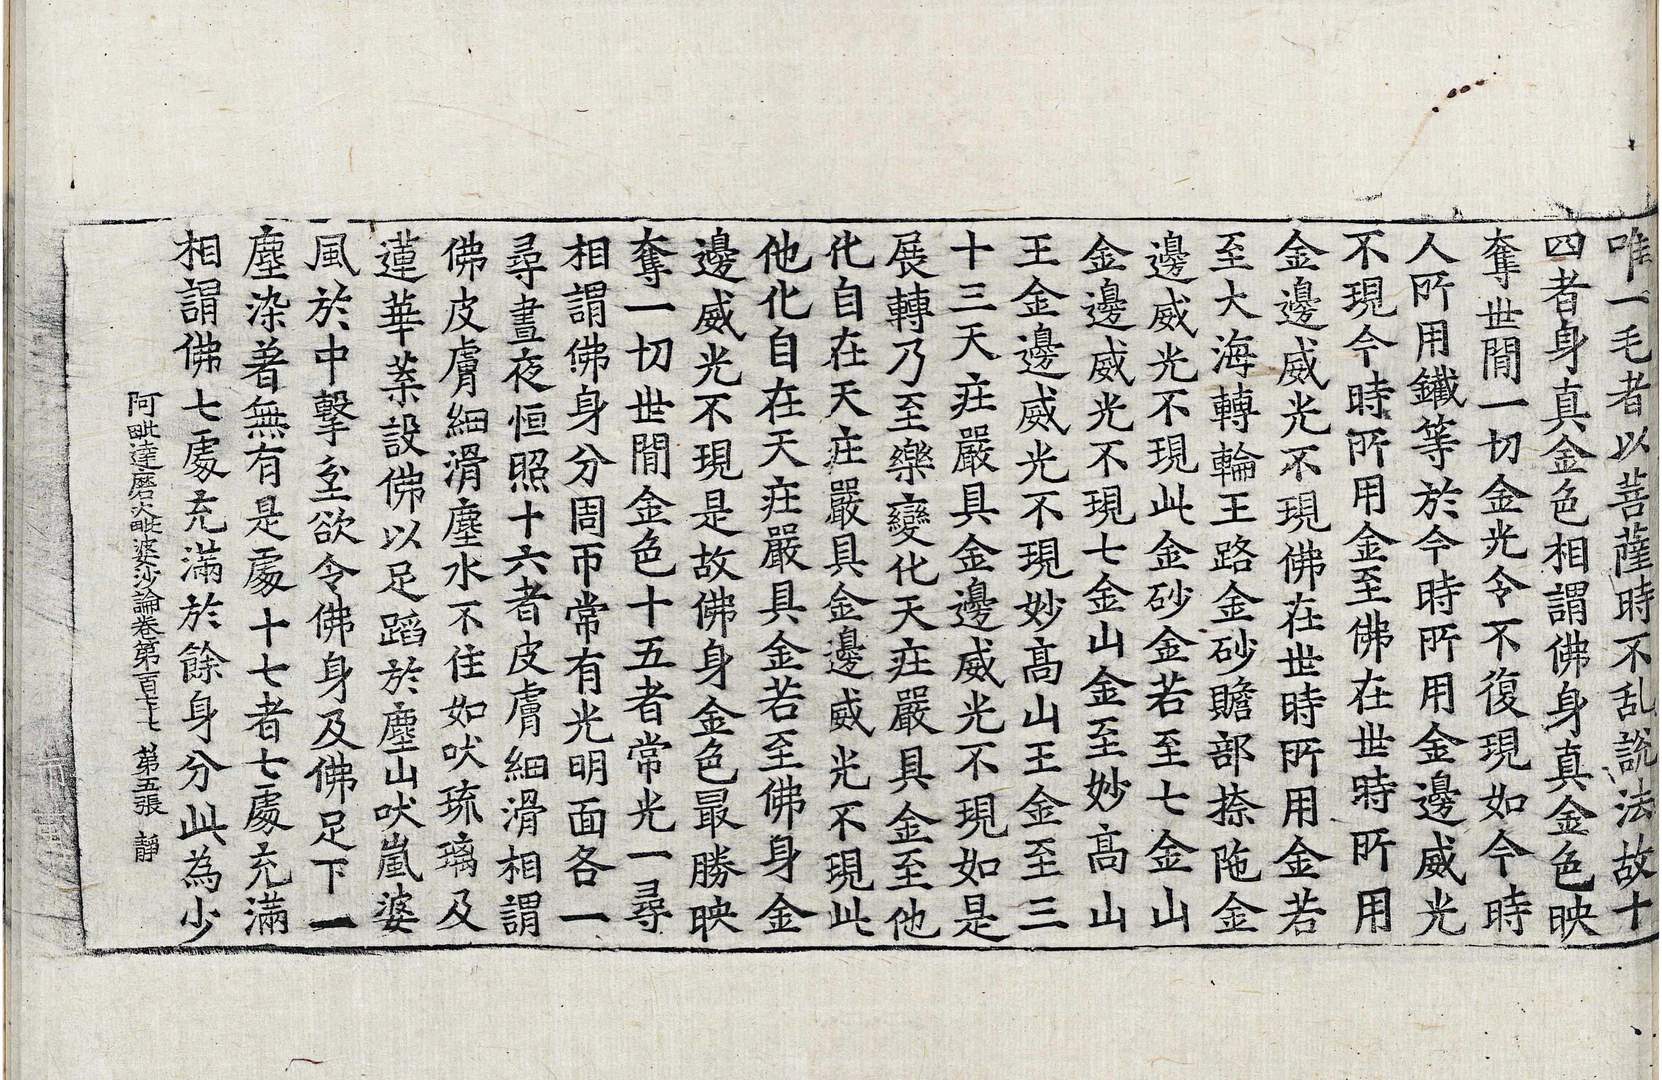 唯一毛者以菩薩時不乱說法故十
四者身真金色相謂佛身真金色映
奪世間一切金光令不復現如今時
人所用鐵等於今時所用金邊威光
不現今時所用金至佛在世時所用
金邊威光不現佛在世時所用金若
至大海轉輪王路金砂贍部捺陁金
邊威光不現此金砂金若至七金山
金邊威光不現七金山金至妙高山
王金邊威光不現妙高山王金至三
十三天疘嚴具金邊威光不現如是
展轉乃至樂變化天疘嚴具金至他
化自在天疘嚴具金邊威光不現此
他化自在天疘嚴具金若至佛身金
邊威光不現是故佛身金色最勝映
奪一切世間金色十五者常光一尋
相謂佛身分周帀常有光明面各一
尋晝夜恒照十六者皮膚細滑相謂
佛皮膚細滑塵水不住如吠琉璃及
蓮華葉設佛以足蹈於塵山吠嵐婆
風於中擊至欲令佛身及佛足下一
塵染著無有是處十七者七處充滿
相謂佛七處充滿於餘身分此為少
阿毗達磨大毗婆沙論卷第百七十七 第五張 靜